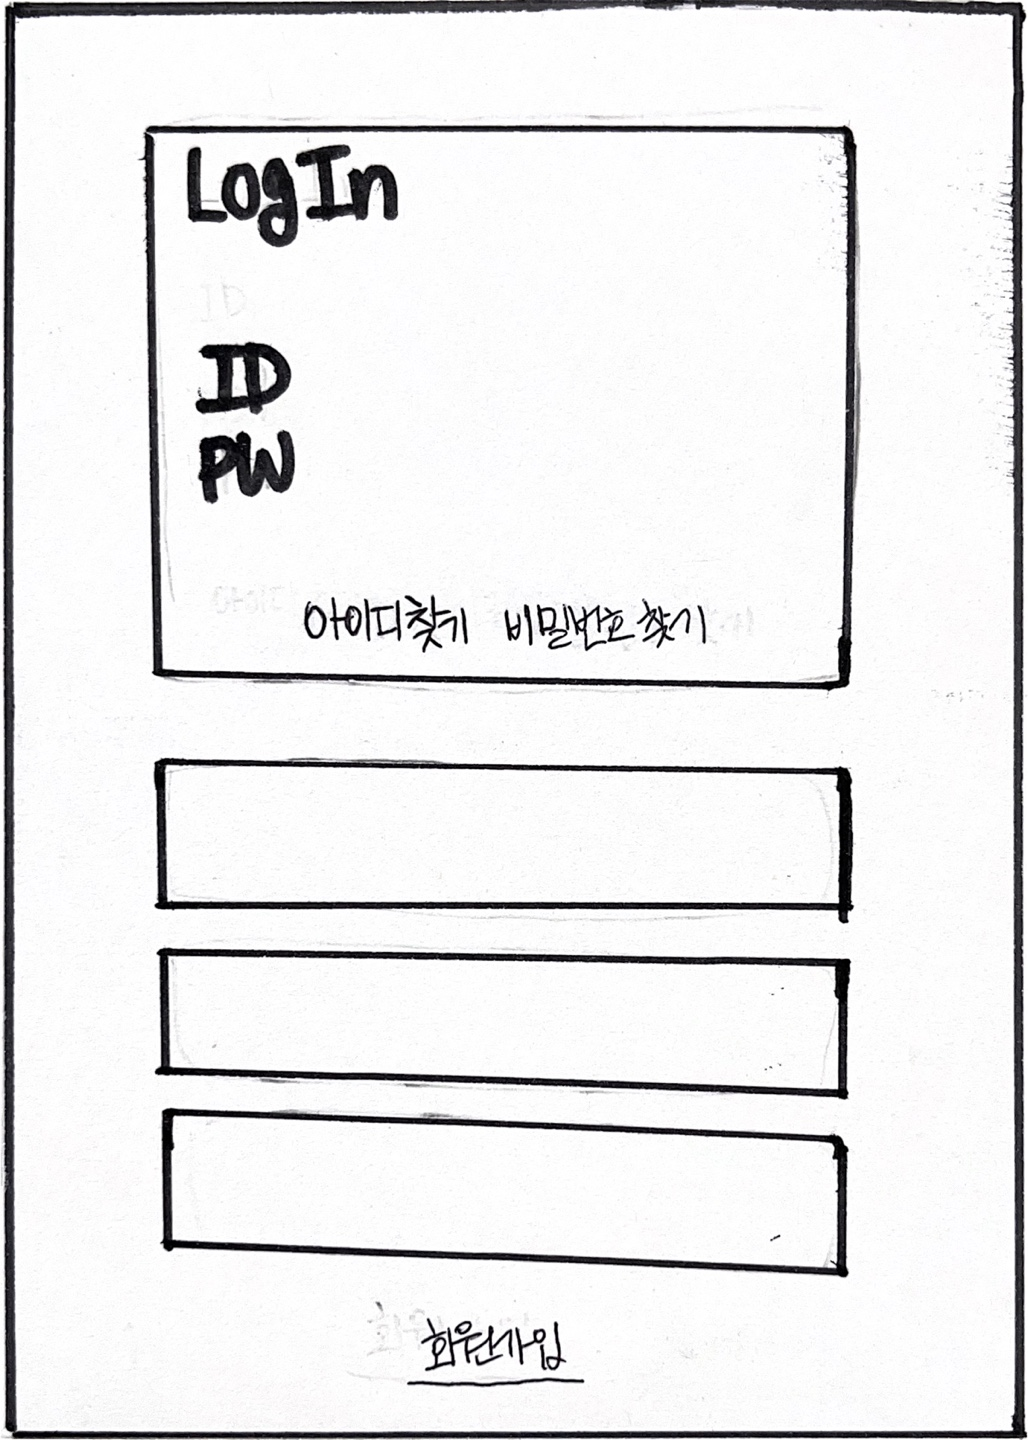 LogIn
ID
PW
아이디찾기 비밀번호찾기
회원가입